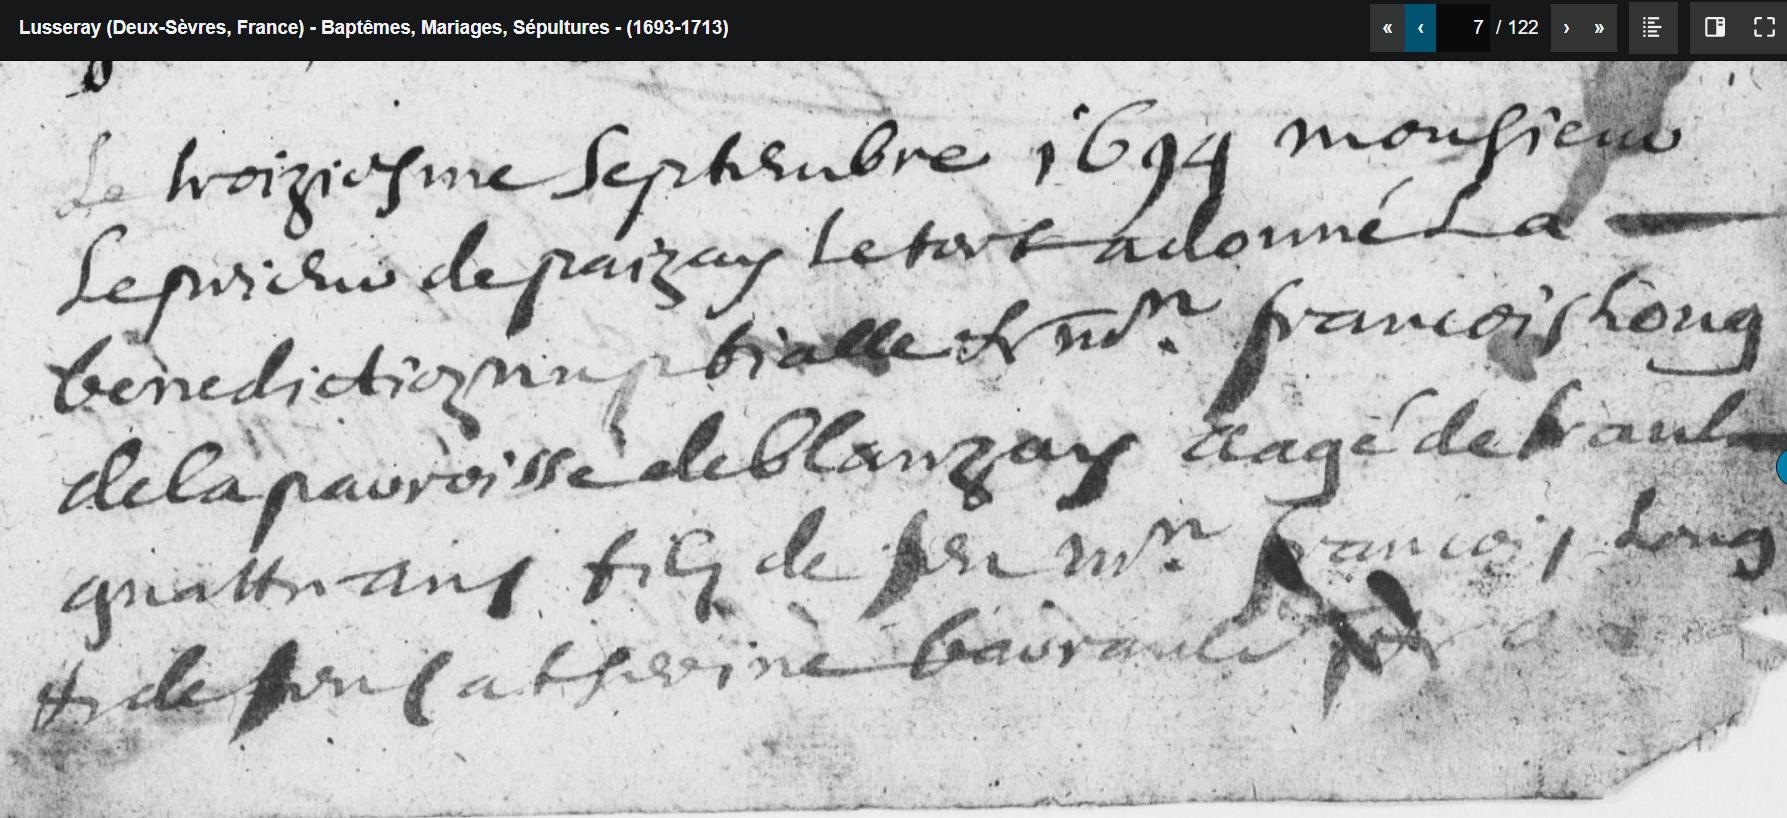 Lusseray (Deux-Sèvres, France) - Baptêmes, Mariages, Sépultures - (1693-1713)
« ‹ 7 / 122 › »
Le troiziesme Septembre 1694 monsieur
Le prieur de paizay Le tort a donné La
benediction nuptialle Er mrn francois Long
de la parroisse de blanzay aagé de trante
quattre ans filz de feu mrn francois Long
Er de feu Catherine